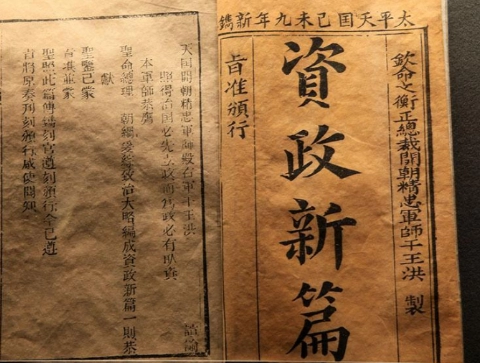 太平天囯己未九年新鐫
欽命文衡正總裁開朝精忠軍師干王洪 製
資政新篇
旨准頒行
天囯開朝精忠軍師殿右軍干王洪 諭
照得治囯必先立政而為政必有取資
本軍師恭膺
聖命總理 朝綱爰綜致治大略編成資政新篇一則恭
獻
聖鑒已蒙
旨准並蒙
聖 此篇傳鐫刻官遵刻頒行今已遵
旨將原奏刊刻頒行咸使聞知